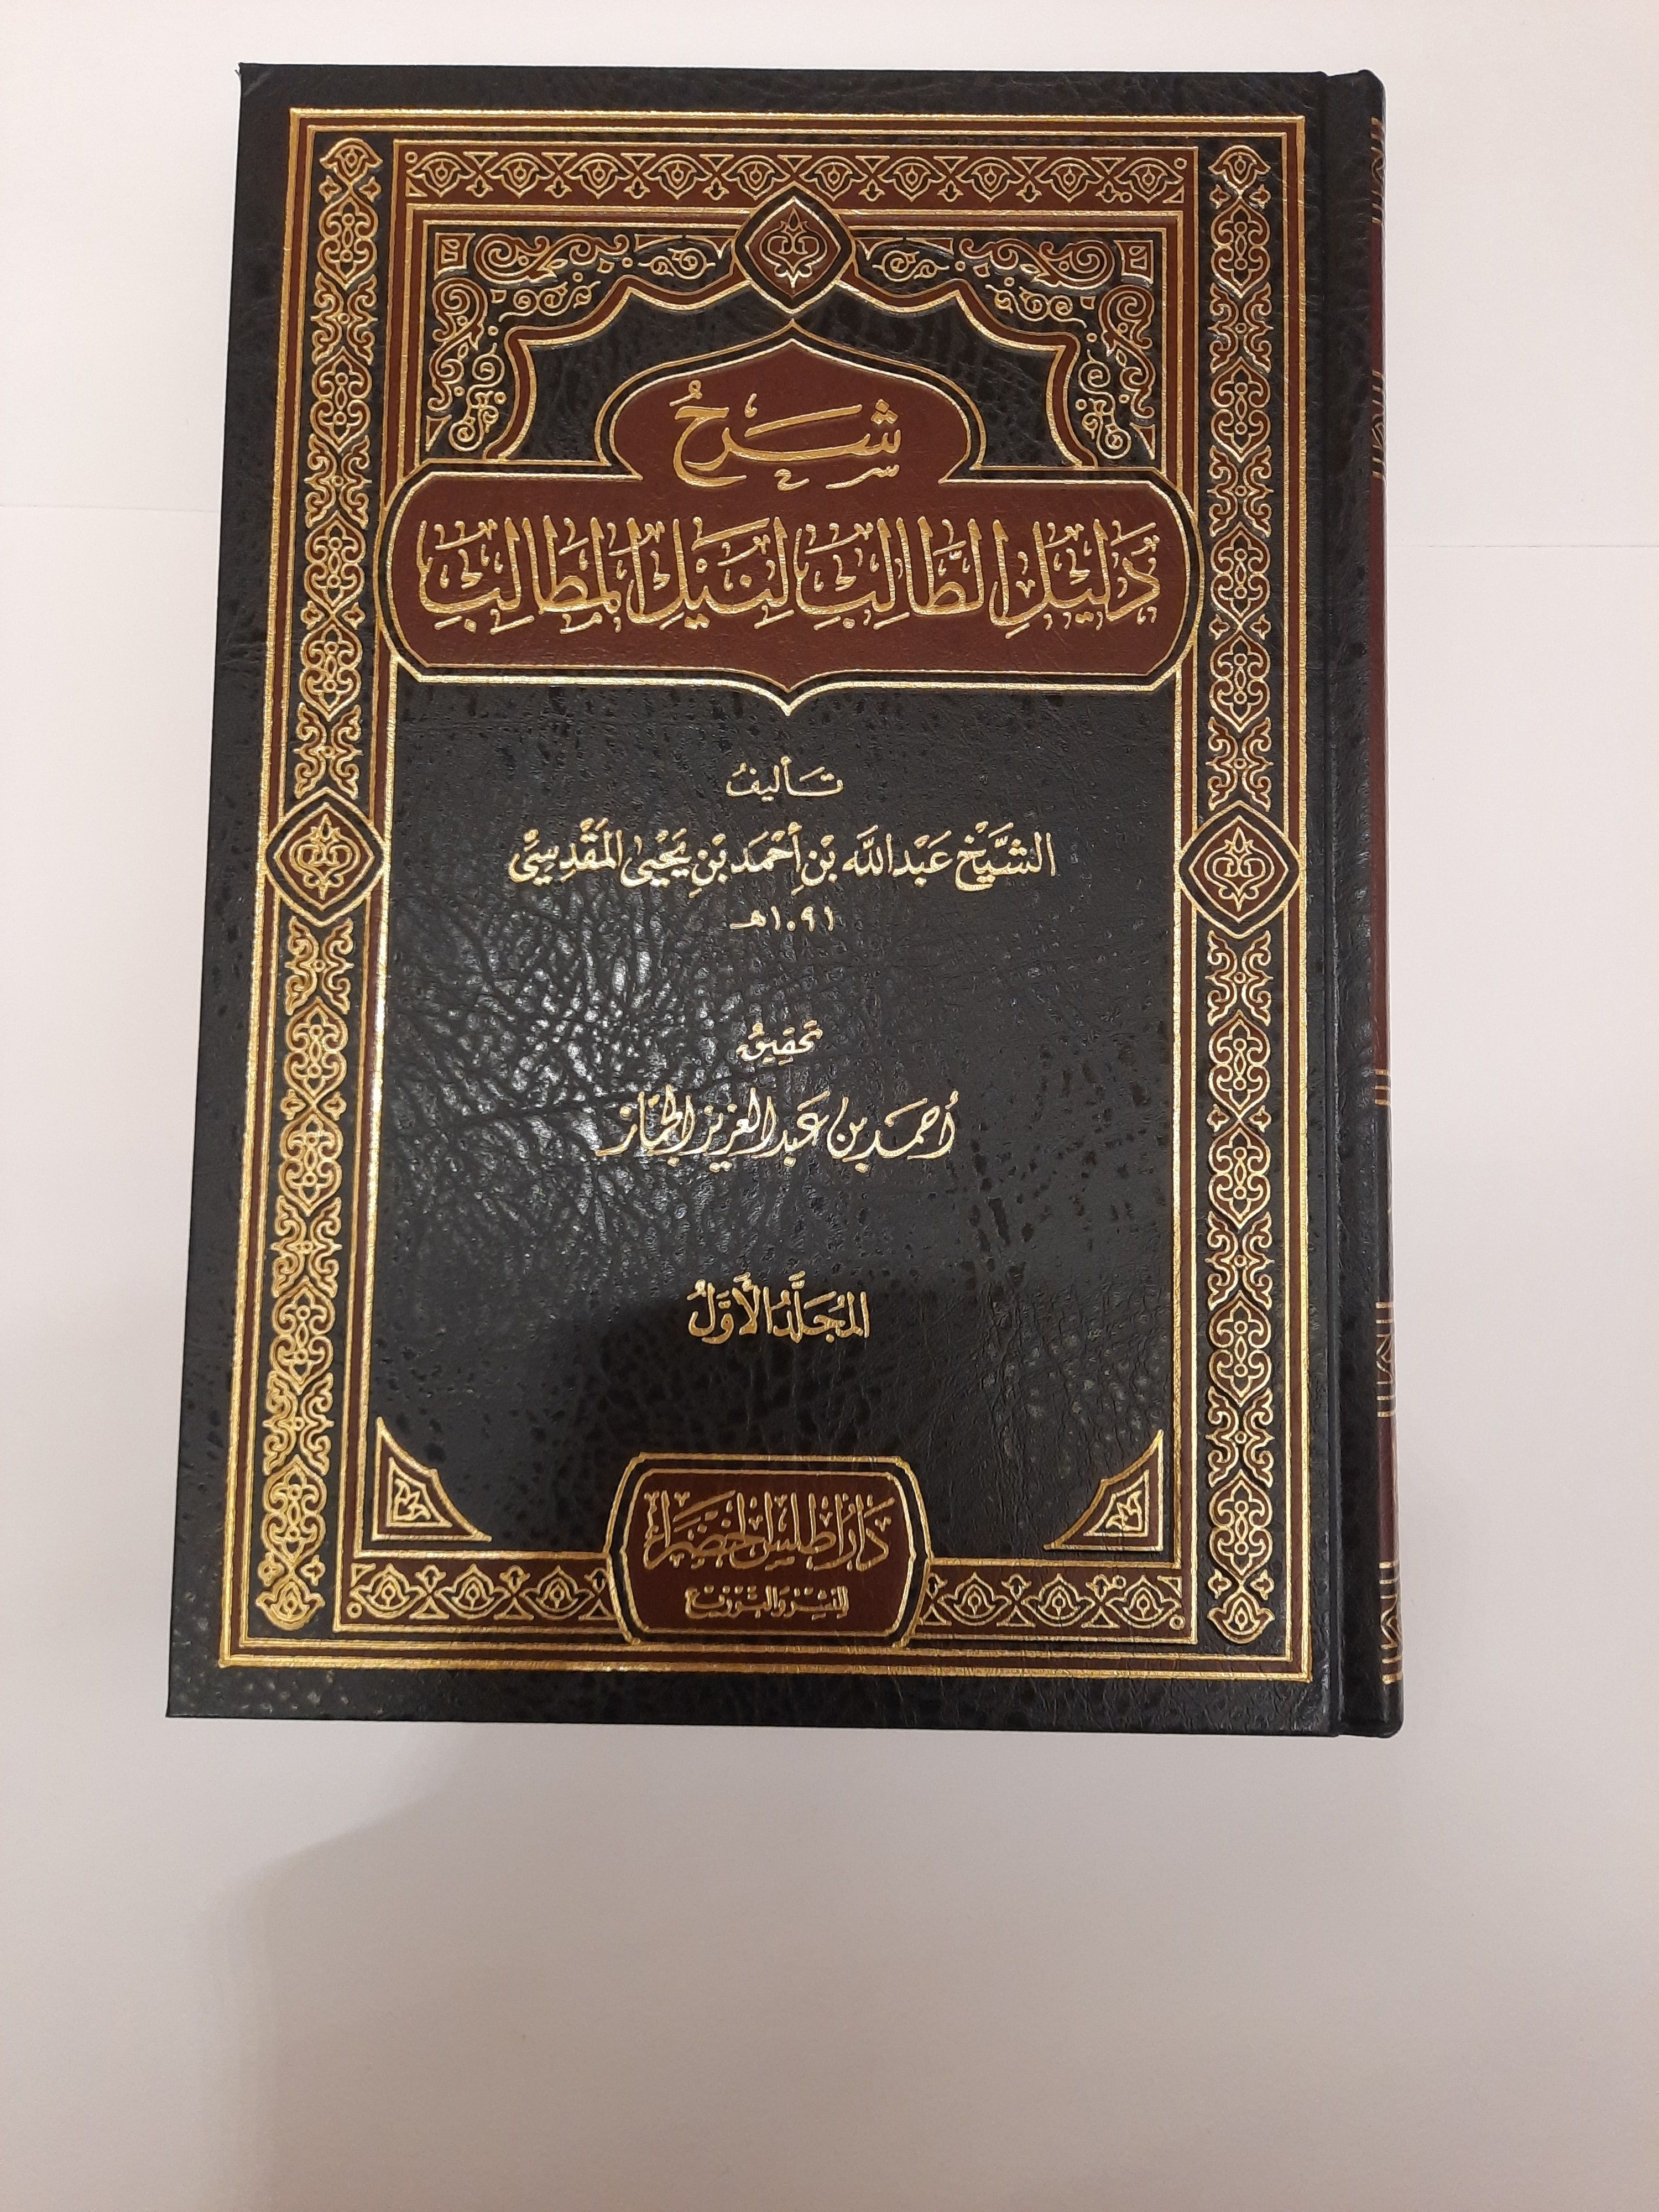 شَرْحُ
دَلِيْلِ الطَّالِبِ لِنَيْلِ الْمَطَالِبِ
تَأليفُ
الشَّيْخ عَبْد اللَّه بْنِ أَحْمَد بْنِ يَحْيَى المَقْدِسِيّ
١٠٩١هـ
تَحقِيقُ
أحمَد بن عَبد العزيز الجمّاز
المُجَلَّدُ الأَوَّلُ
دَارُ أطلس الخضراء
للنشر والتوزيع